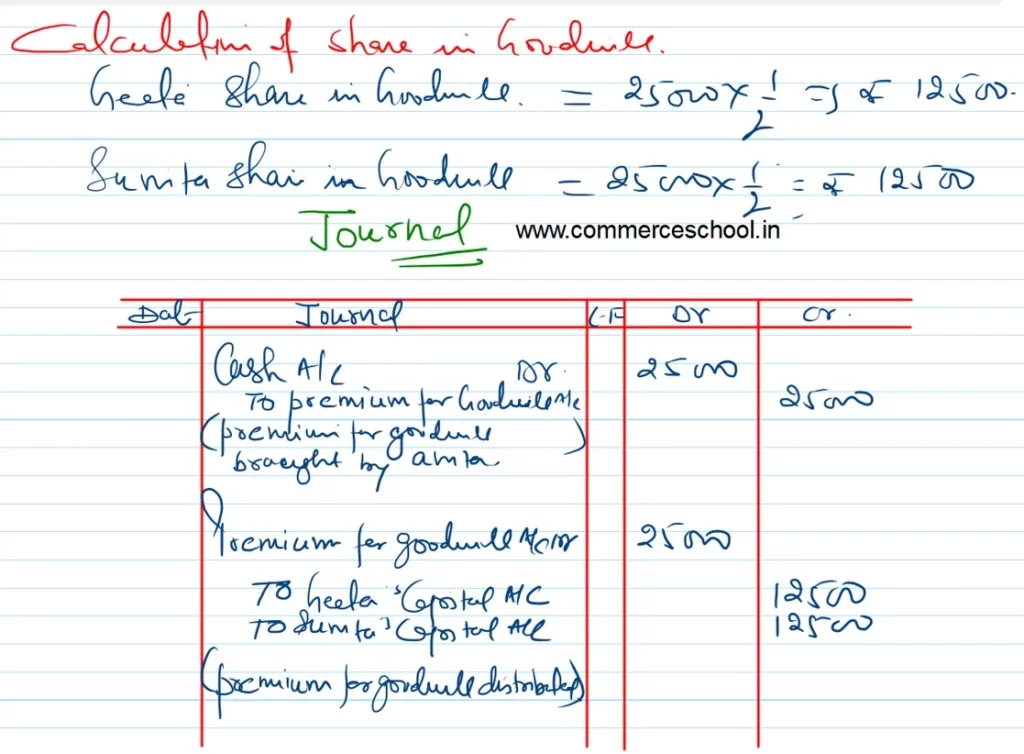 Calculation of share in Goodwill.
Geeta share in Goodwill. = 25000 × 1/2 => ₹ 12500.
Sunita share in Goodwill = 25000 × 1/2 = ₹ 12500
Journal www.commerceschool.in
Date Journal L.F Dr Cr.
Cash A/c Dr. 25000
To premium for Goodwill A/c 25000
(premium for goodwill
brought by amita
Premium for goodwill A/c Dr 25000
To Geeta's Capital A/C 12500
To Sunita's Capital A/C 12500
(premium for goodwill distributed)